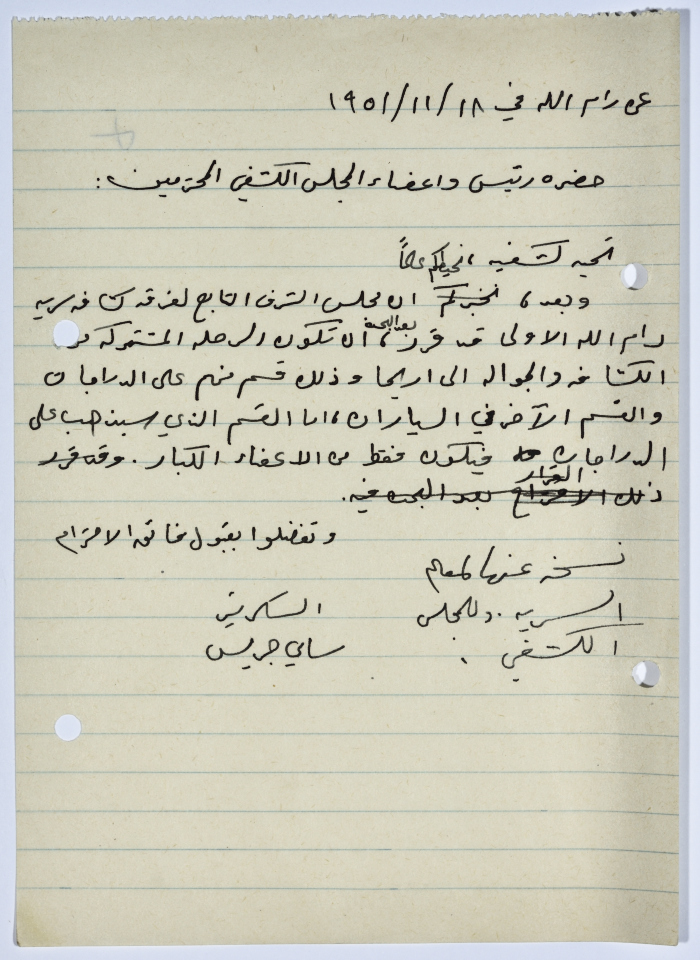 عن رام الله في ١٨/١١/١٩٥١
حضره رئيس واعضاء المجلس الكشفي المحترمين:
تحيه كشفيه ، نحيكم
وبعد، نخبركم ان مجلس الشرف التابع لفرقه كشافه سريه
رام الله الاولى قد قرر، بعد البحث ان تكون الرحله المشتركه من
الكشافه والجواله الى اريحا وذلك قسم منهم على الدراجات
والقسم الآخر في السيارات ، اما القسم الذي سيذهب على
الدراجات فيكون فقط من الاعضاء الكبار. وقد قرر
ذلك الاقتراح القرار بعد البحث فيه.
وتفضلوا بقبول فائق الاحترام
نسخه عنها لمعلم
السريه . وللمجلس السكرتير
الكشفي سامي جريس